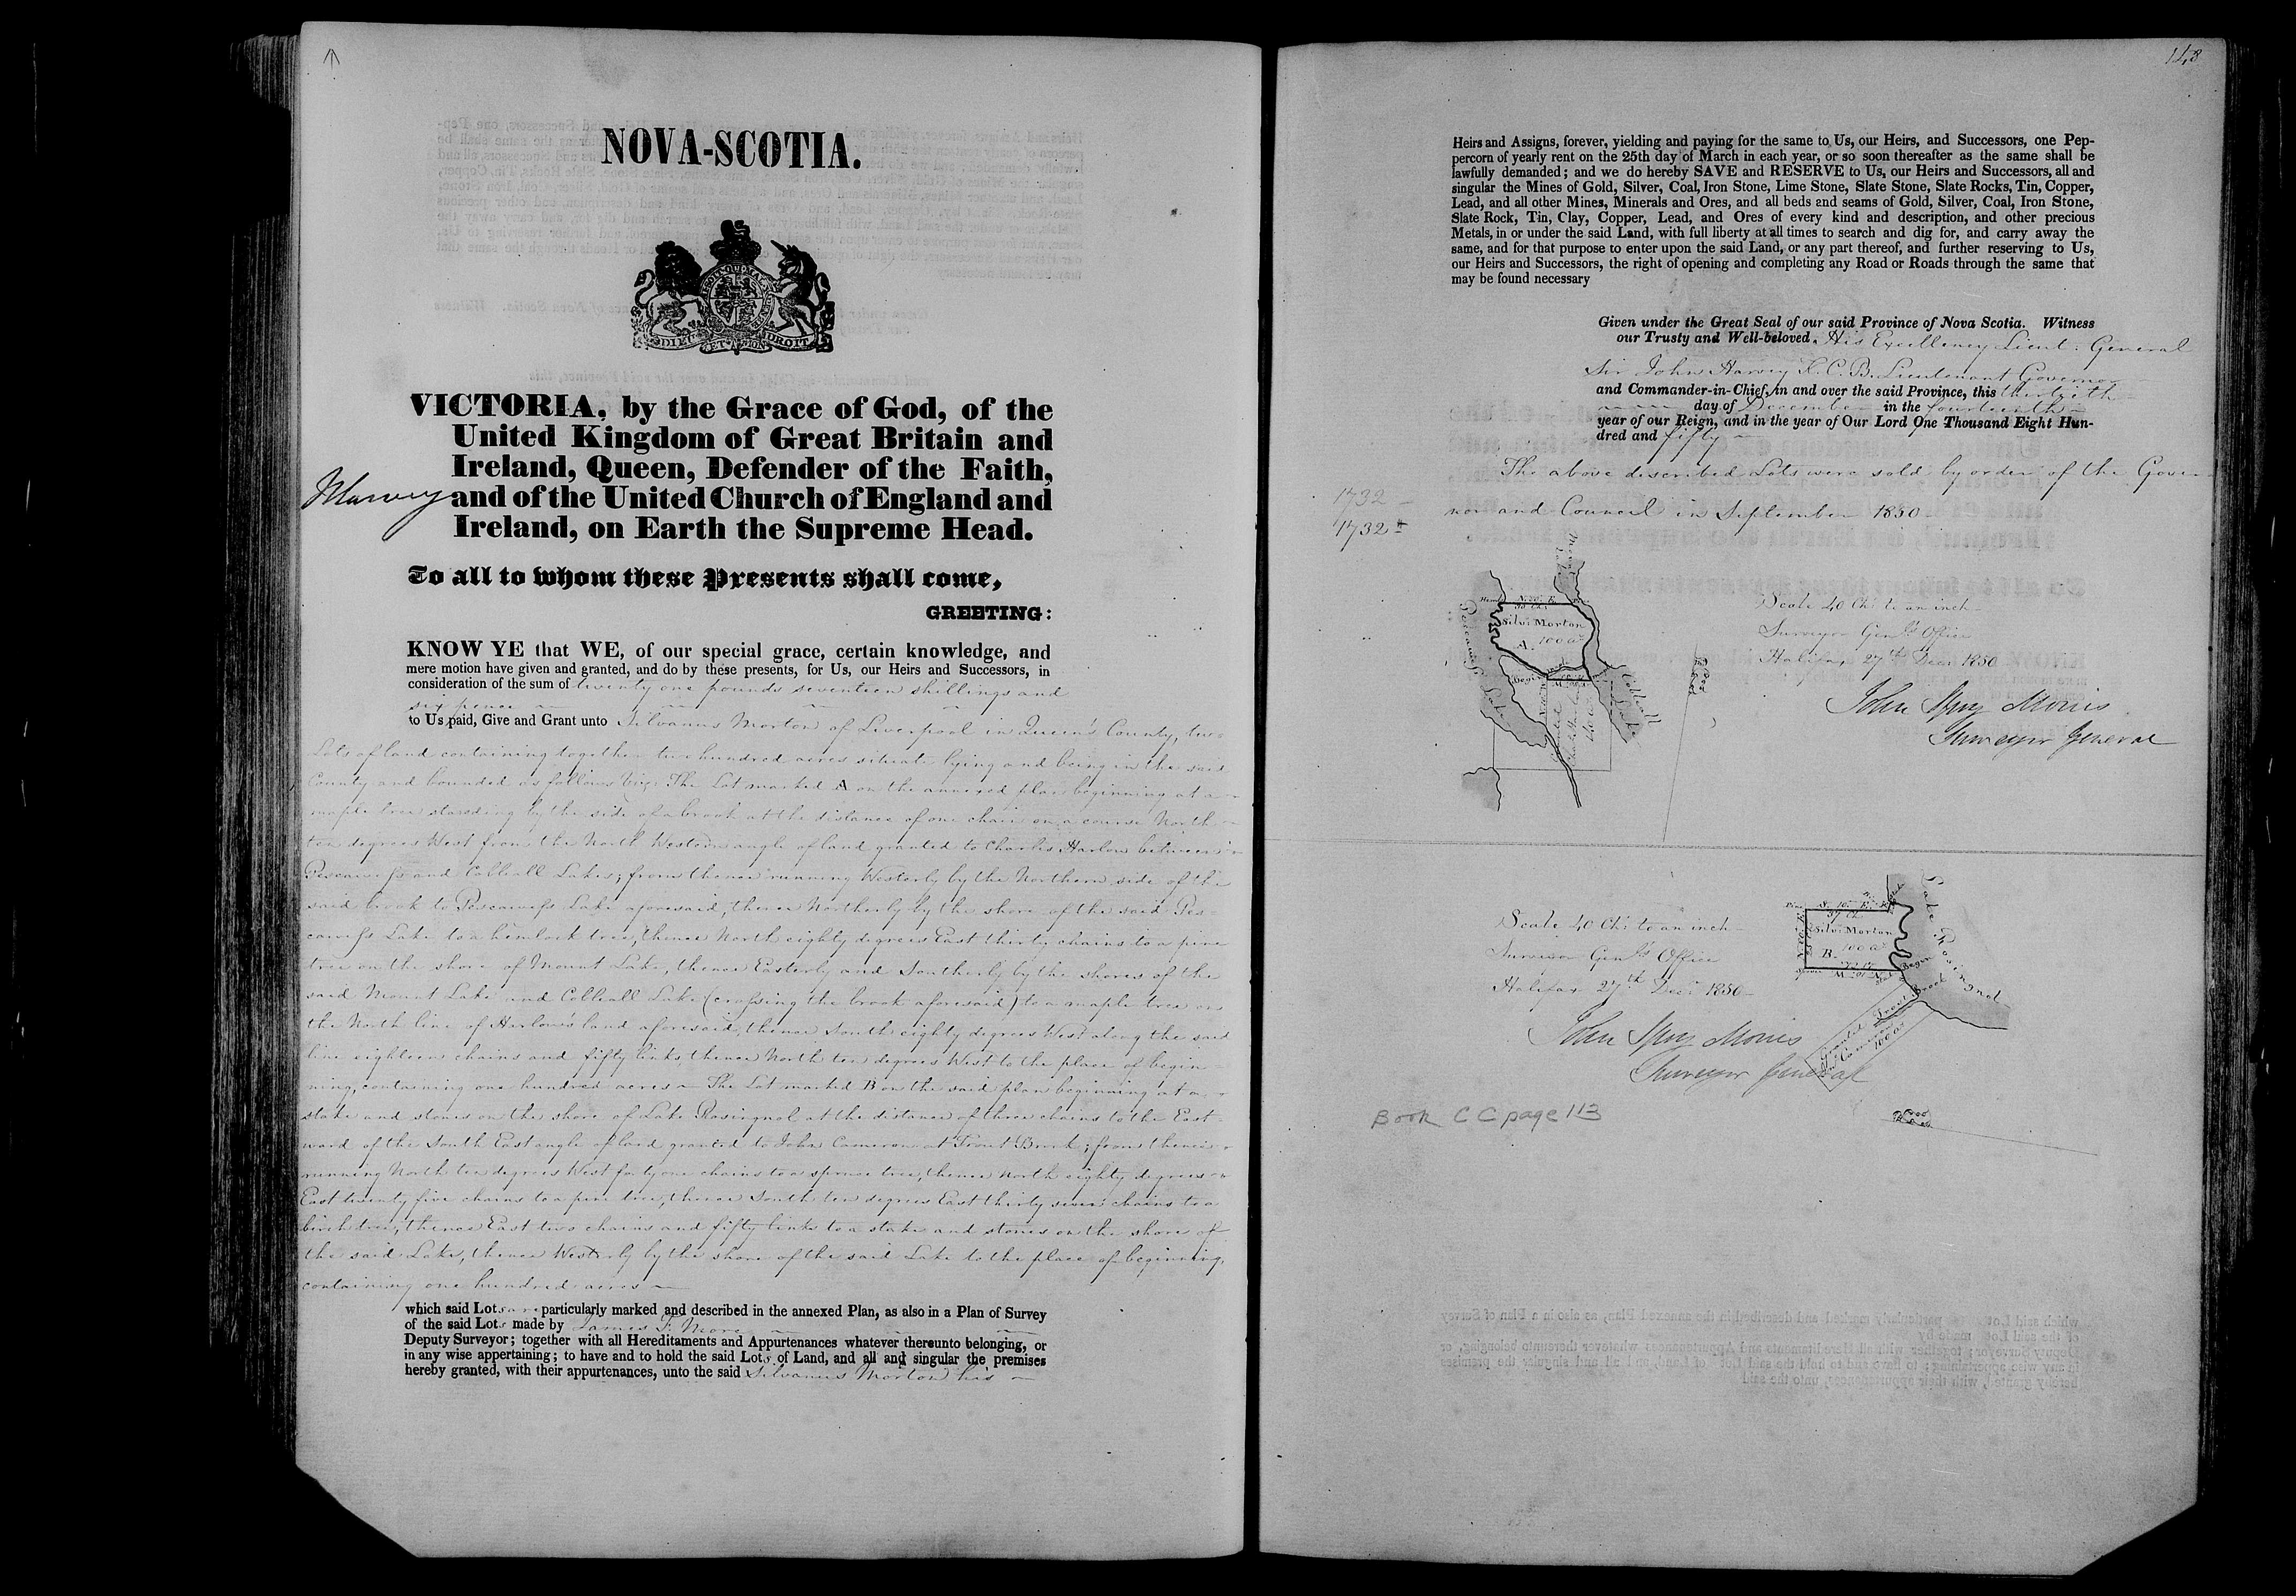 NOVA-SCOTIA.
DIEU ET MON DROIT
VICTORIA, by the Grace of God, of the
United Kingdom of Great Britain and
Ireland, Queen, Defender of the Faith,
and of the United Church of England and
Ireland, on Earth the Supreme Head.
To all to whom these Presents shall come,
GREETING:
KNOW YE that WE, of our special grace, certain knowledge, and
mere motion have given and granted, and do by these presents, for Us, our Heirs and Successors, in
consideration of the sum of twenty one pounds seventeen shillings and
six pence
to Us paid, Give and Grant unto Silvanus Morton of Liverpool in Queen's County, two
Lots of land containing together two hundred acres situate lying and being in the said
County and bounded as follows viz: The Lot marked A on the annexed plan beginning at a
maple tree standing by the side of a brook at the distance of one chain on a course North
ten degrees West from the North Western angle of land granted to Charles Harlow between
Pescawess and Cobleall Lakes; from thence running Westerly by the Northern side of the
said brook to Pescawess Lake aforesaid, thence Northerly by the shore of the said Pes-
cawess Lake to a hemlock tree, thence North eighty degrees East thirty chains to a pine
tree on the shore of Mount Lake, thence Easterly and Southerly by the shores of the
said Mount Lake and Cobleall Lake (crossing the brook aforesaid) to a maple tree on
the North line of Harlow's land aforesaid, thence South eighty degrees West along the said
line eighteen chains and fifty links, thence North ten degrees West to the place of begin-
ning, containing one hundred acres — The Lot marked B on the said plan beginning at a
stake and stones on the shore of Lake Rosingnol at the distance of three chains to the East-
ward of the South East angle of land granted to John Cameron at Trout Brook; from thence
running North ten degrees West forty one chains to a spruce tree, thence North eighty degrees
East twenty five chains to a pine tree, thence South ten degrees East thirty seven chains to a
birch tree, thence East two chains and fifty links to a stake and stones on the shore of
the said Lake, thence Westerly by the shore of the said Lake to the place of beginning,
containing one hundred acres —
which said Lots are particularly marked and described in the annexed Plan, as also in a Plan of Survey
of the said Lots made by James F. More
Deputy Surveyor; together with all Hereditaments and Appurtenances whatever thereunto belonging, or
in any wise appertaining; to have and to hold the said Lots of Land, and all and singular the premises
hereby granted, with their appurtenances, unto the said Silvanus Morton his
148
Heirs and Assigns, forever, yielding and paying for the same to Us, our Heirs, and Successors, one Pep-
percorn of yearly rent on the 25th day of March in each year, or so soon thereafter as the same shall be
lawfully demanded; and we do hereby SAVE and RESERVE to Us, our Heirs and Successors, all and
singular the Mines of Gold, Silver, Coal, Iron Stone, Lime Stone, Slate Stone, Slate Rocks, Tin, Copper,
Lead, and all other Mines, Minerals and Ores, and all beds and seams of Gold, Silver, Coal, Iron Stone,
Slate Rock, Tin, Clay, Copper, Lead, and Ores of every kind and description, and other precious
Metals, in or under the said Land, with full liberty at all times to search and dig for, and carry away the
same, and for that purpose to enter upon the said Land, or any part thereof, and further reserving to Us,
our Heirs and Successors, the right of opening and completing any Road or Roads through the same that
may be found necessary
Given under the Great Seal of our said Province of Nova Scotia. Witness
our Trusty and Well-beloved, His Excellency Lieut. General
Sir John Harvey K. C. B. Lieutenant Governor
and Commander-in-Chief, in and over the said Province, this thirtieth
day of December in the fourteenth
year of our Reign, and in the year of Our Lord One Thousand Eight Hun-
dred and fifty
The above described Lots were sold by order of the Gover-
nor and Council in September 1850
1732
1732
Silvs. Morton
A. 100 as
Scale 40 Chs. to an inch
Surveyor Genls. Office
Halifax 27th Decr. 1850
John Spry Morris
Surveyor General
Pescawess Lake
Cobleall Lake
Scale 40 Chs. to an inch
Surveyor Genls. Office
Halifax 27th Decr. 1850
John Spry Morris
Surveyor General
Silvs. Morton
100 as
B.
Lake Rosingnol
Trout Brook
Granted
J. Cameron
100 as
Book CC page 113